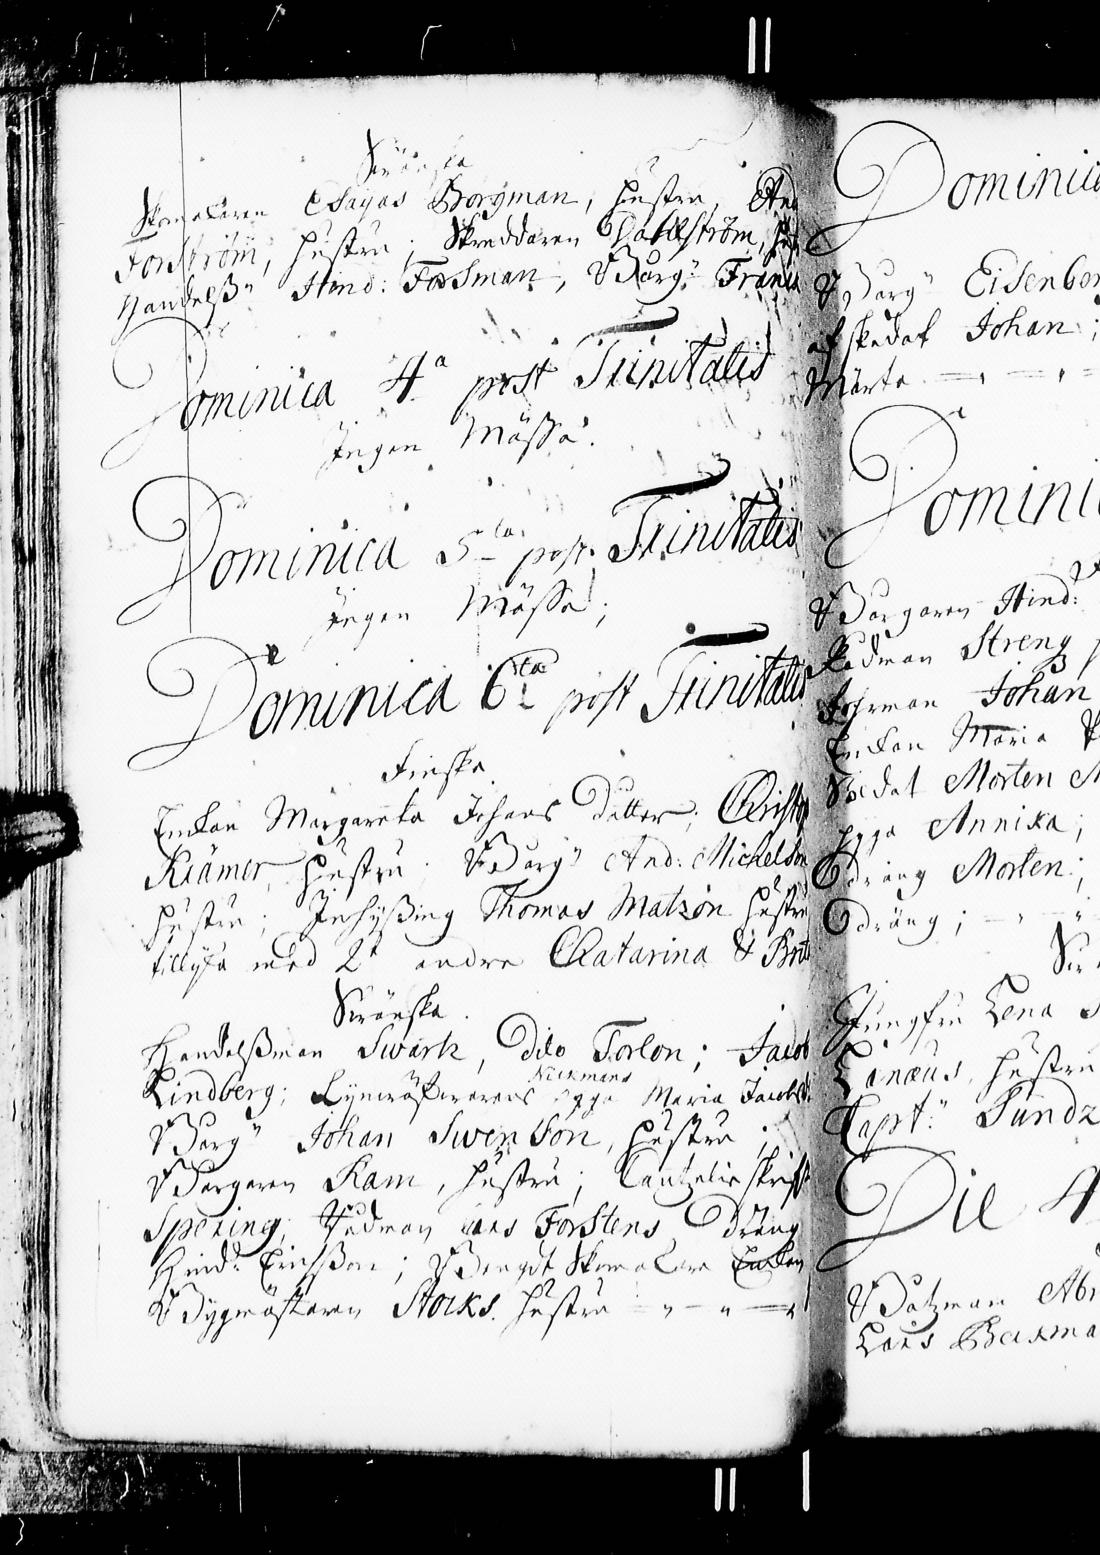 Swänska
Skomakaren Esayas Borgman, hustru, And
Forsström, hustru; Skreddaren Dahlström, hust
Handelßm Hind: Forsman, Borg: Frans
Dominica 4a post Trinitatis
Ingen Mässa.
Dominica 5ta post Trinitatis
Ingen Mässa;
Dominica 6ta post Trinitatis
Finska
Enkan Margareta Johans dotter; Christop
Krämer, hustru; Borg And: Michelson
hustru; Inhyßing Thomas Matzon hustru
med 2 andra Catarina & Brit
Swänska.
Handelßman Swartz, dito Torlon; Jacob
Nickmans
Lindberg; pyga Maria Jacobs
Borg Johan Swenson, hustru;
Borgaren Ram, hustru; Cantzelie skrif
Spering; Rådman Lars Forstens dräng
Hind: Erichßon; Bengdt Skomakare Enkan
Bygmästaren Stocks hustru
Dominica
Borg Eisenber
Johan;
Märta
Dominic
Borgaren Hind:
Rådman Streng
Johan
Enkan Maria
Soldat Morten M
pyga Annika;
dräng Morten;
dräng;
Sw
Jungfru Lena S
Lanæus, hustru
Capt: Sundz
Die 4
Båtzman Abr
Lars Beckma